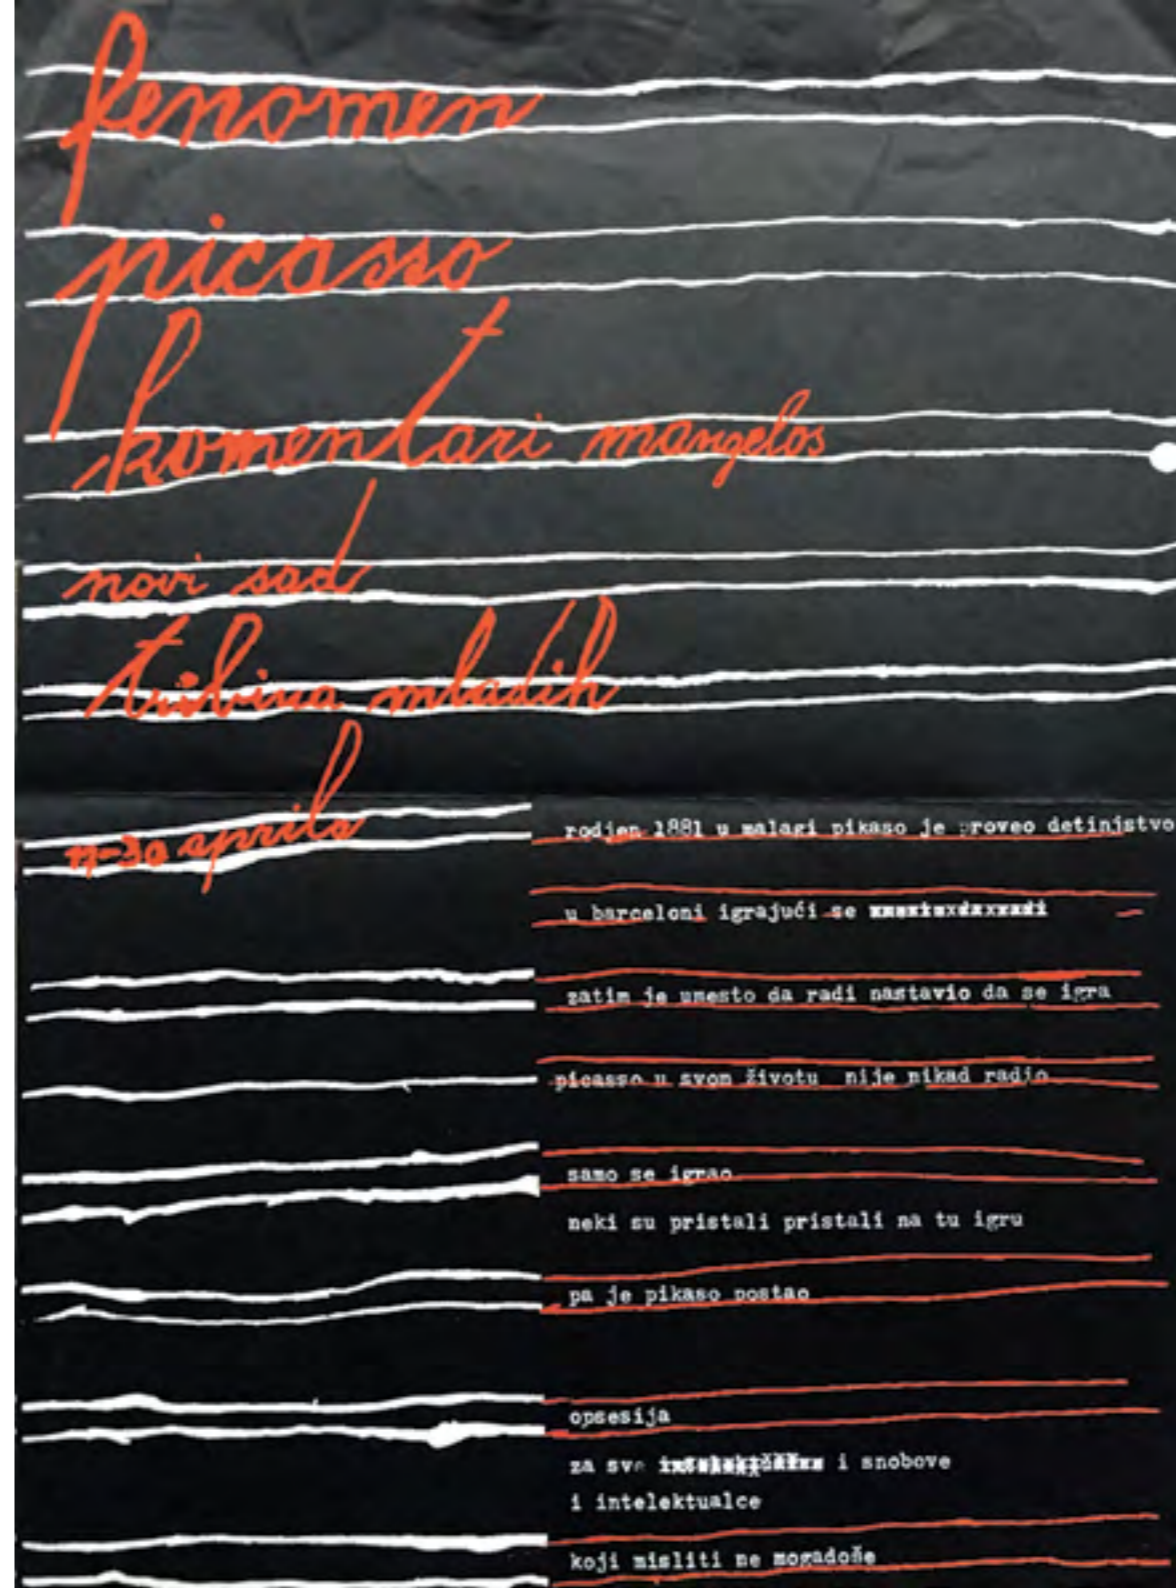 fenomen
picasso
komentari mangelos
novi sad
tribina mladih
17-30 aprila
rodjen 1881 u malagi pikaso je proveo detinjstvo
u barceloni igrajući se
zatim je umesto da radi nastavio da se igra
picasso u svom životu nije nikad radio
samo se igrao
neki su pristali pristali na tu igru
pa je pikaso postao
opsesija
za sve i snobove
i intelektualce
koji misliti ne mogadoše